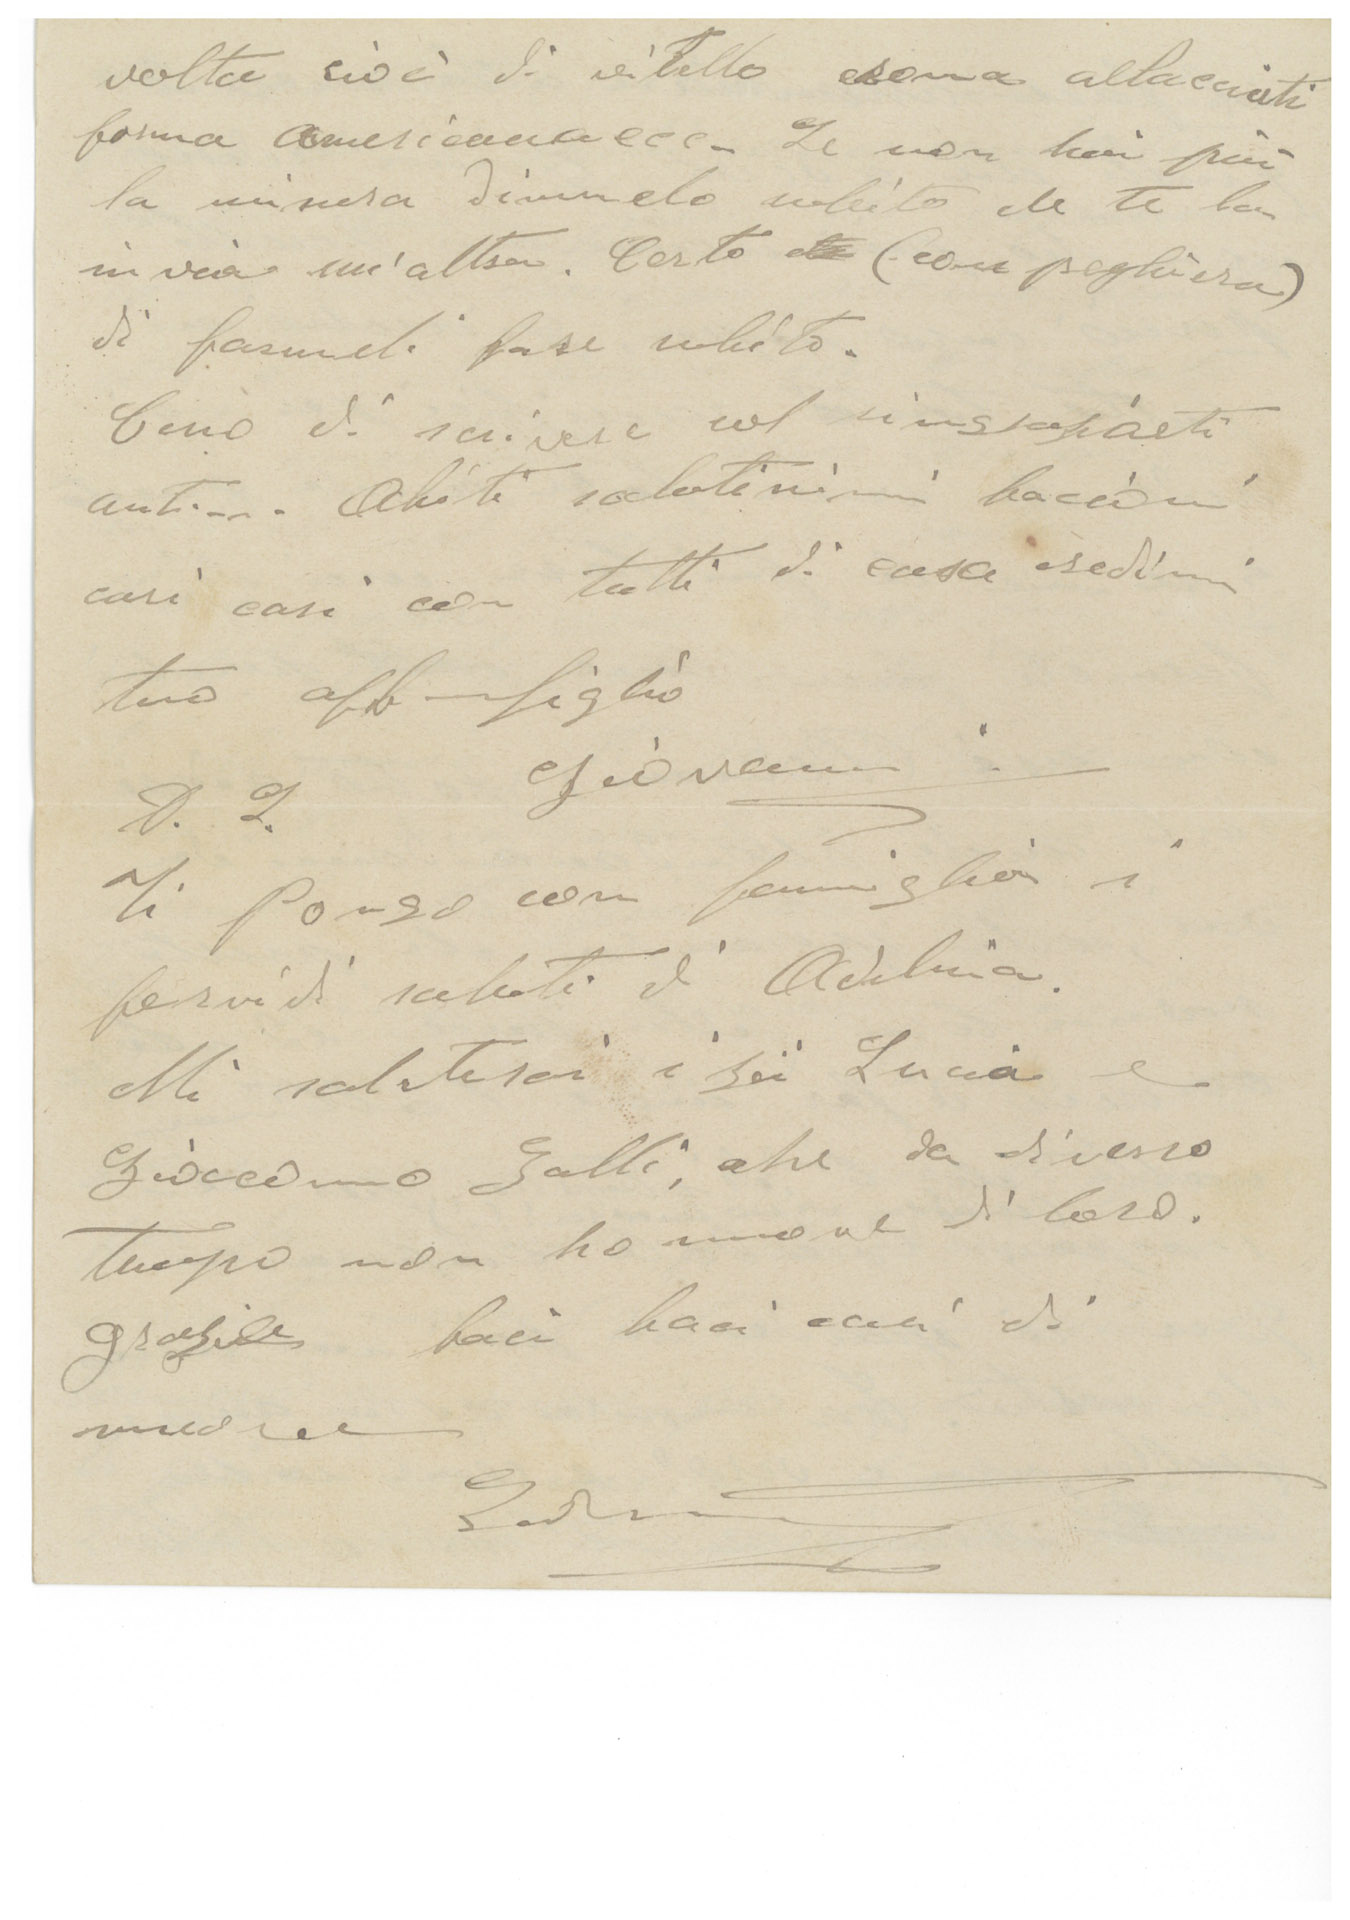 volta cioè di vitello allacciati
forma americana ecc. Se non hai più
la misura dimmelo subito che te la
invia un'altra. Certo (con preghiera)
di farmeli fare subito.
Ceso di scrivere col ringraziarti
anti... Abiti salutissimi bacioni
cari cari con tutti di casa credimi
tuo aff figlio
Giovanni
P. S.
Ti Porgo con famiglia i
fervidi saluti di Adelina.
Mi saluterai i zii Lucia e
Giaccomo Galli, che da diverso
tempo non ho nuove di loro.
grazie baci baci cari di
nuovo